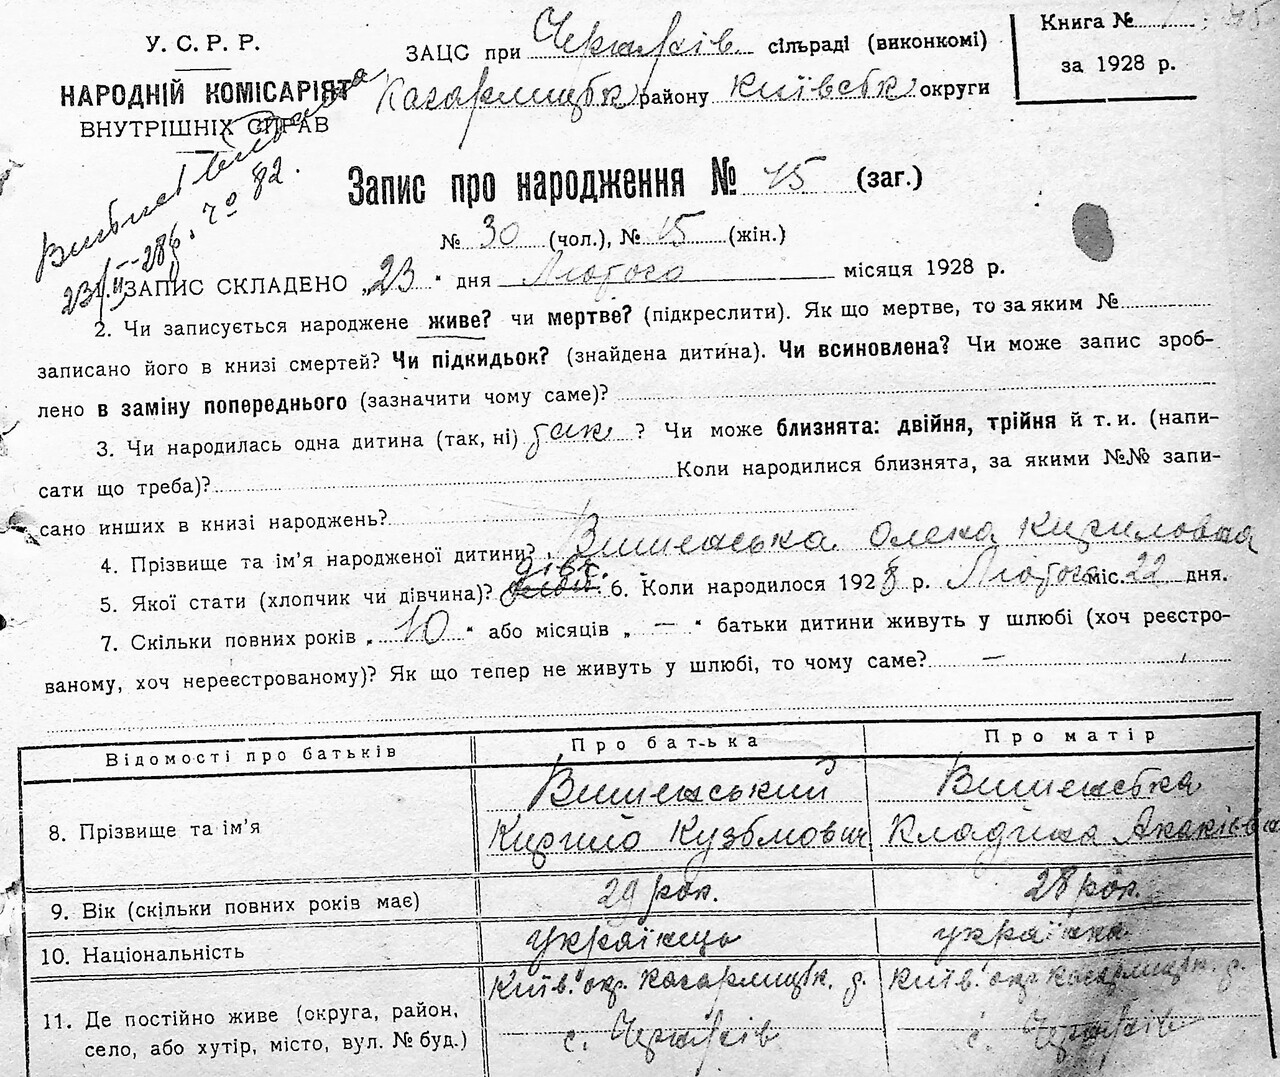 У. С. Р. Р.
НАРОДНІЙ КОМІСАРІЯТ
ВНУТРІШНІХ СПРАВ
ЗАЦС при Черняхів сільраді (виконкомі)
Кагарлицьк району Київськ округи
Книга №
за 1928 р.
23/II-28 р. № 82.
Запис про народження № 45 (заг.)
№ 30 (чол.), № 15 (жін.)
1. ЗАПИС СКЛАДЕНО „23" дня Лютого місяця 1928 р.
2. Чи записується народжене живе? чи мертве? (підкреслити). Як що мертве, то за яким №
записано його в книзі смертей? Чи підкидьок? (знайдена дитина). Чи всиновлена? Чи може запис зроб-
лено в заміну попереднього (зазначити чому саме)?
3. Чи народилась одна дитина (так, ні) так ? Чи може близнята: двійня, трійня й т. и. (напи-
сати що треба)? Коли народилися близнята, за якими №№ запи-
сано инших в книзі народжень?
4. Прізвище та ім'я народженої дитини? Вишенська Олена Кириловна
5. Якої стати (хлопчик чи дівчина)? дівч. 6. Коли народилося 1928 р. Лютого міс. 22 дня.
7. Скільки повних років „10" або місяців „—" батьки дитини живуть у шлюбі (хоч реєстро-
ваному, хоч нереєстрованому)? Як що тепер не живуть у шлюбі, то чому саме? —
Відомості про батьків Про батька Про матір
8. Прізвище та ім'я Вишенський Кирило Кузьмович Вишенська Клавдина Акакієвна
9. Вік (скільки повних років має) 29 рок. 28 рок.
10. Національність українець українка
11. Де постійно живе (округа, район, Київ. окр. Кагарлицьк. р. Київ. окр. Кагарлицьк. р.
село, або хутір, місто, вул. № буд.) с. Черняхів с. Черняхів